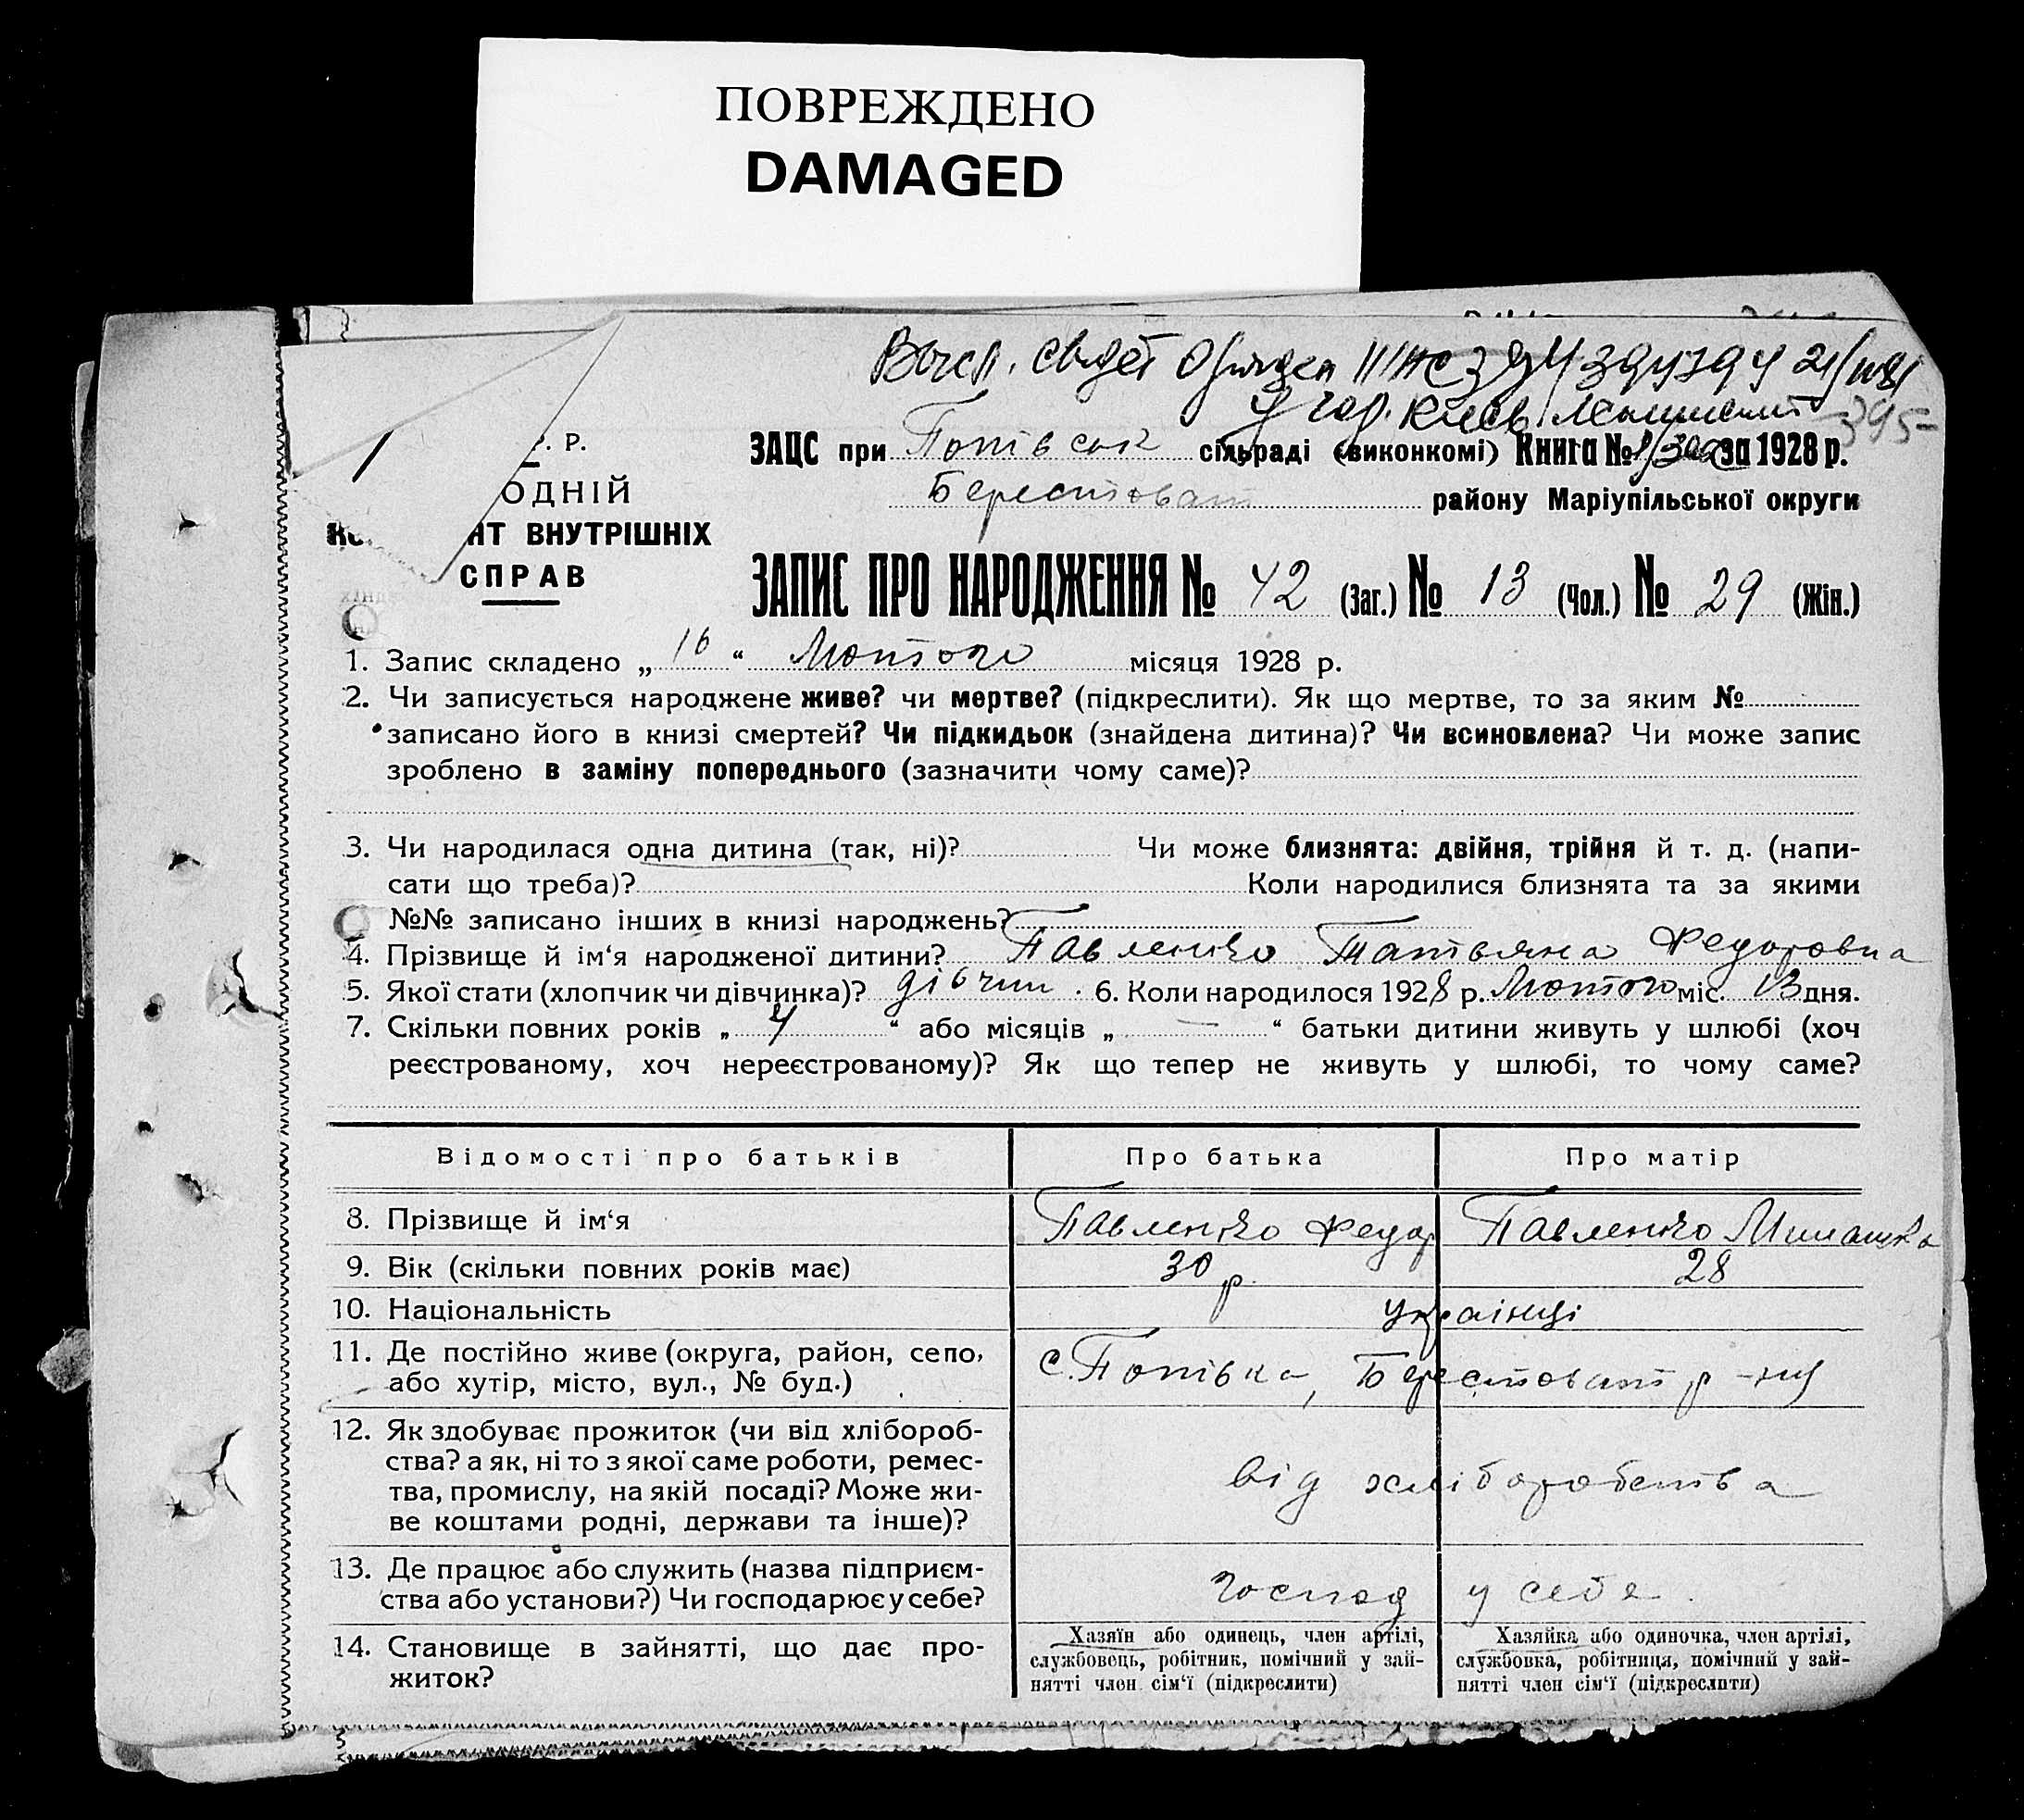 ПОВРЕЖДЕНО
DAMAGED
395
Р. ЗАЦС при Попівськ сільраді (виконкомі) Книга № за 1928 р.
ОДНІЙ Берестоват району Маріупільської округи
АТ ВНУТРІШНІХ
СПРАВ
ЗАПИС ПРО НАРОДЖЕННЯ № 42 (Заг.) № 13 (Чол.) № 29 (Жін.)
1. Запис складено „ 16 “ Лютого місяця 1928 р.
2. Чи записується народжене живе? чи мертве? (підкреслити). Як що мертве, то за яким №
записано його в книзі смертей? Чи підкидьок (знайдена дитина)? Чи всиновлена? Чи може запис
зроблено в заміну попереднього (зазначити чому саме)?
3. Чи народилася одна дитина (так, ні)? Чи може близнята: двійня, трійня й т. д. (напи-
сати що треба)? Коли народилися близнята та за якими
№№ записано інших в книзі народжень?
4. Прізвище й ім‘я народженої дитини? Павленко Татьяна Федоровна
5. Якої стати (хлопчик чи дівчинка)? дівчин. 6. Коли народилося 1928 р. Лютого міс. 13 дня.
7. Скільки повних років „ 4 “ або місяців „ — “ батьки дитини живуть у шлюбі (хоч
реєстрованому, хоч нереєстрованому)? Як що тепер не живуть у шлюбі, то чому саме?
Відомості про батьків Про батька Про матір
8. Прізвище й ім‘я Павленко Федор Павленко
9. Вік (скільки повних років має) 30 р. 28
10. Національність українці
11. Де постійно живе (округа, район, село,
або хутір, місто, вул., № буд.) с. Попівка, Берестоват р-ну
12. Як здобуває прожиток (чи від хлібороб-
ства? а як, ні то з якої саме роботи, ремес-
тва, промислу, на якій посаді? Може жи-
ве коштами родні, держави та інше)? від хліборобства
13. Де працює або служить (назва підприєм-
ства або установи?) Чи господарює у себе? господ у себе.
14. Становище в зайнятті, що дає про-
житок?
Хазяїн або одинець, член артілі,
службовець, робітник, помічний у зай-
нятті член сім‘ї (підкреслити)
Хазяйка або одиночка, член артілі,
службовка, робітниця, помічний у зай-
нятті член сім‘ї (підкреслити)